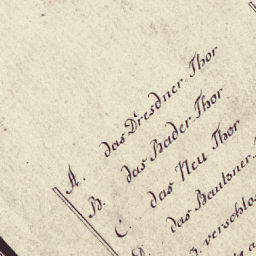 A. das Dresdner Thor
B. das Bader Thor
C. das Neu Thor
D. das Bautsner
verschlos